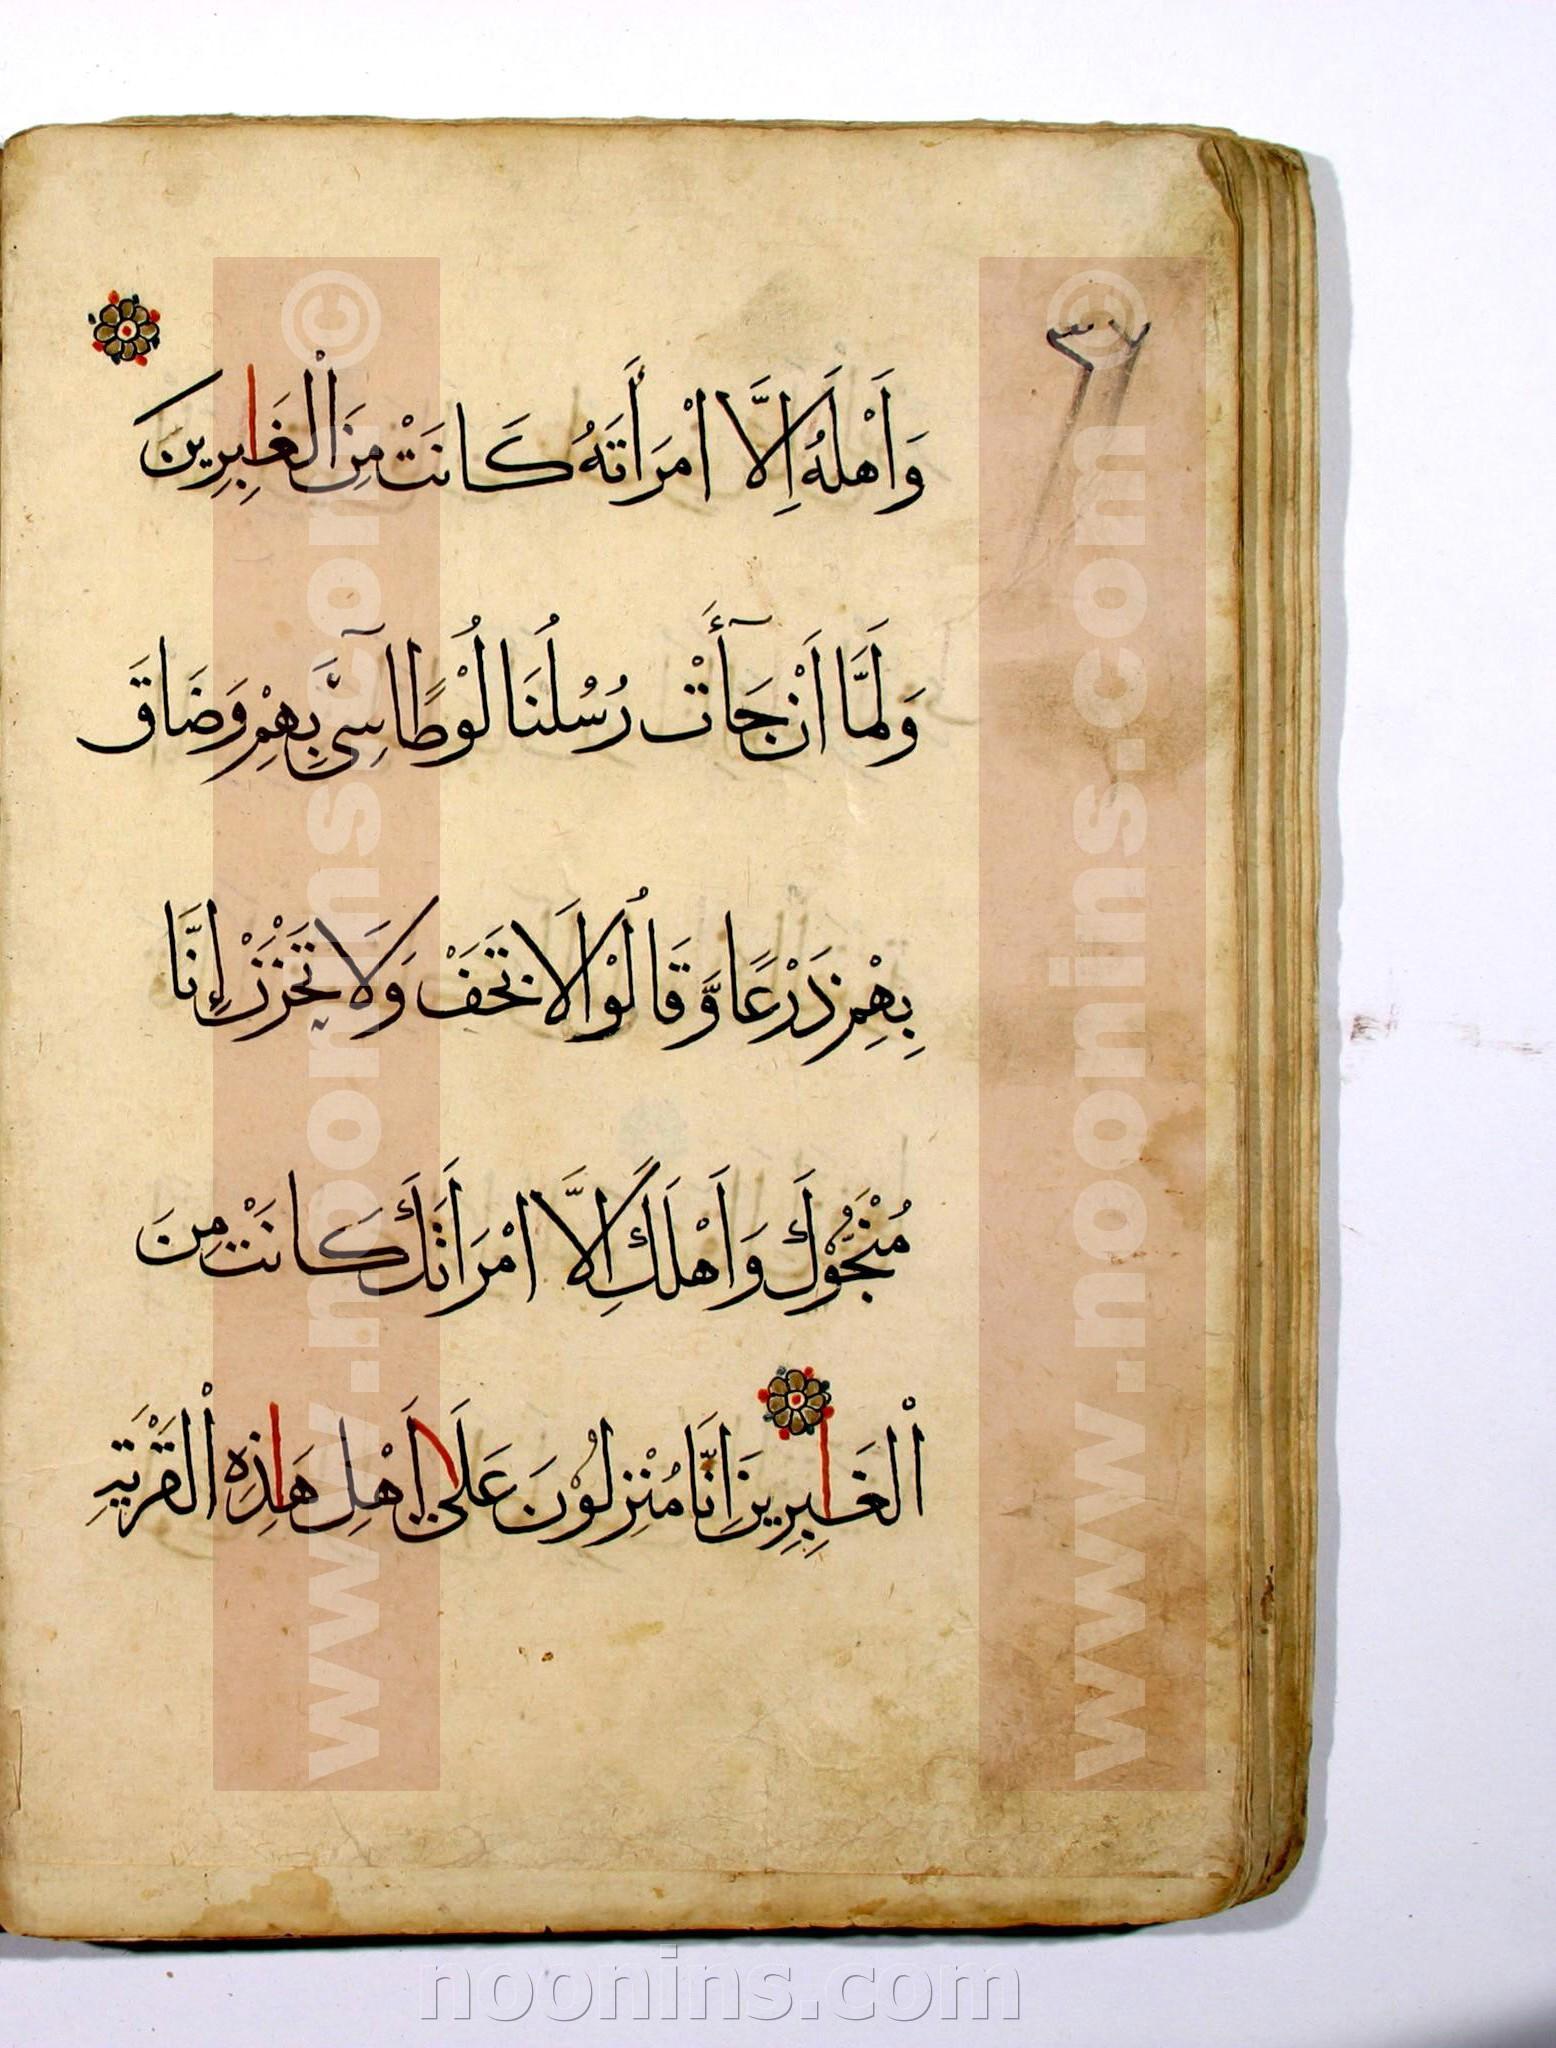 ٣٧
وَأَهْلَهُ إِلَّا امْرَأَتَهُ كَانَتْ مِنَ الْغَابِرِينَ
وَلَمَّا أَنْ جَآءَتْ رُسُلُنَا لُوْطًا سِىٓءَ بِهِمْ وَضَاقَ
بِهِمْ ذَرْعًا وَّقَالُوْا لَا تَخَفْ وَلَا تَحْزَنْ إِنَّا
مُنَجُّوْكَ وَأَهْلَكَ إِلَّا امْرَأَتَكَ كَانَتْ مِنَ
الْغَابِرِينَ إِنَّا مُنْزِلُوْنَ عَلَىٰ أَهْلِ هَاذِهِ الْقَرْيَةِ
www.noonins.com ©
www.noonins.com ©
noonins.com